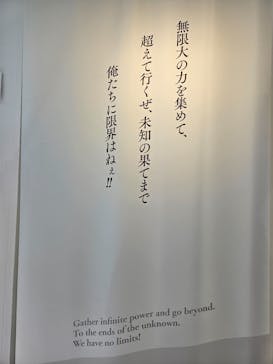 無限大の力を集めて、
超えて行くぜ、未知の果てまで
俺たちに限界はねぇ!!
Gather infinite power and go beyond.
To the ends of the unknown.
We have no limits!